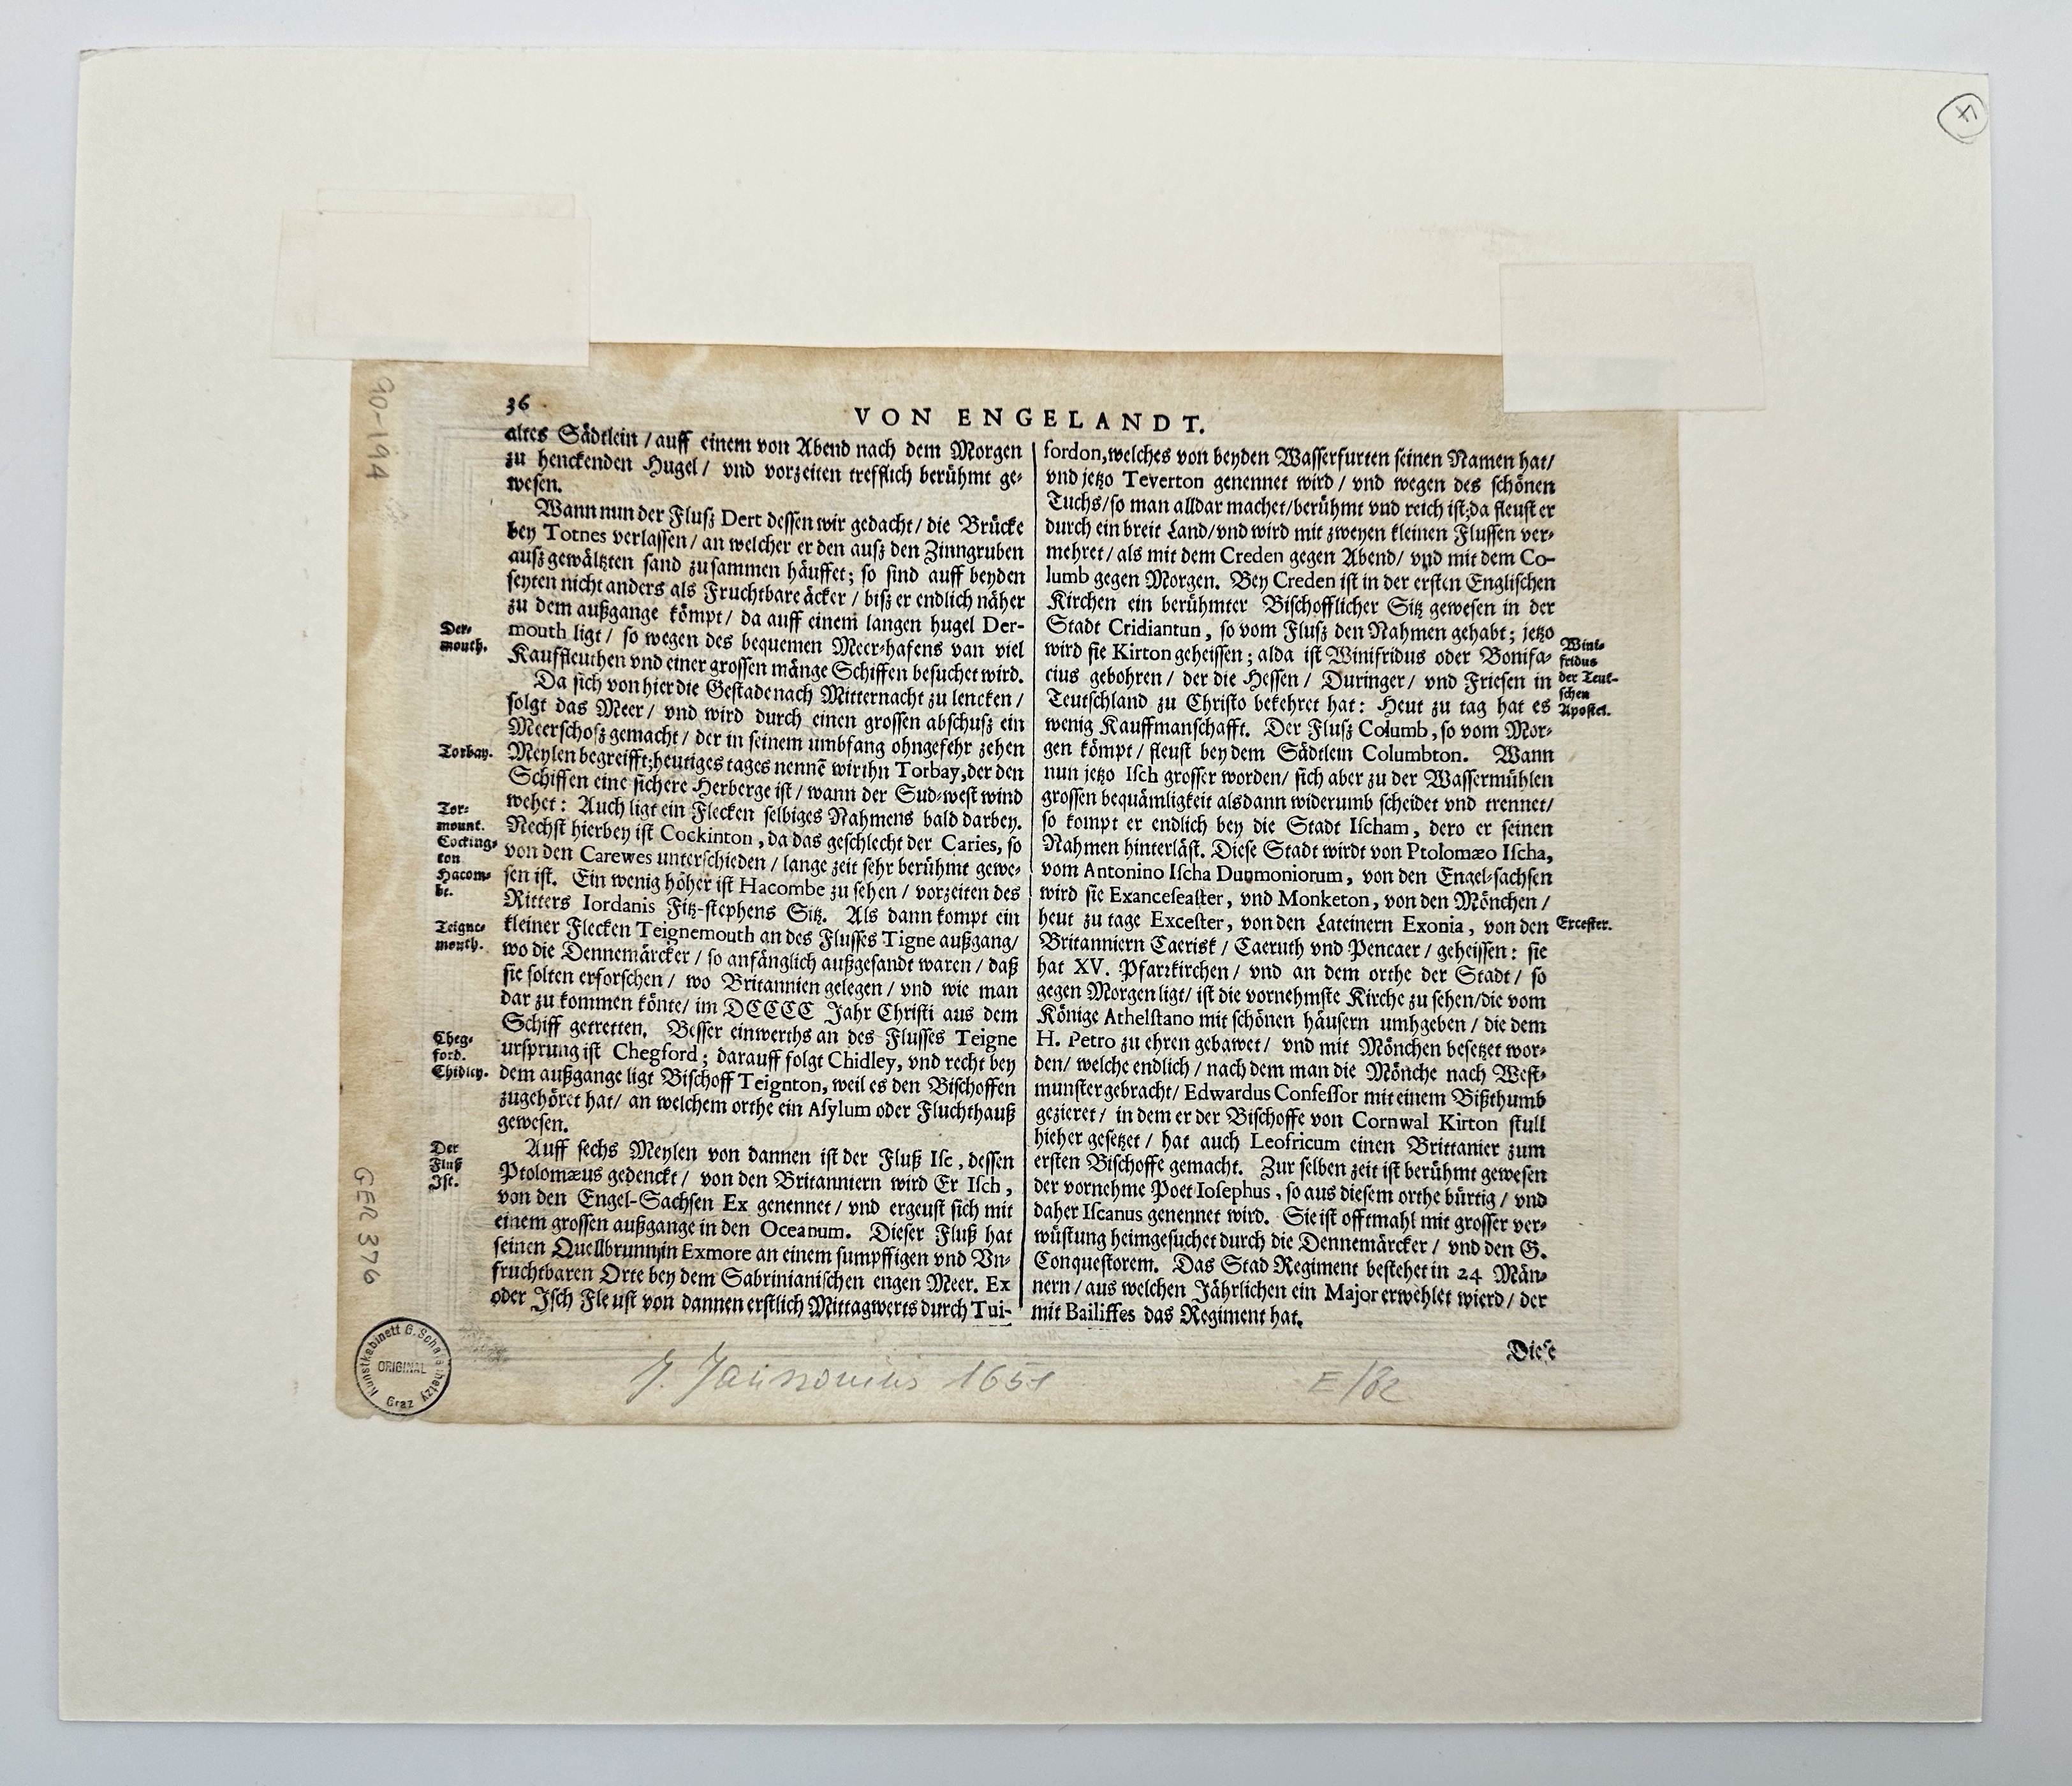 4
36
VON ENGELANDT.
altes Sädtlein / auff einem von Abend nach dem Morgen
zu henckenden Hugel / vnd vorzeiten trefflich berühmt ge-
wesen.
Wann nun der Fluſz Dert dessen wir gedacht / die Brücke
bey Totnes verlassen / an welcher er den auſz den Zinngruben
auſz gewältzten sand zusammen häuffet; so sind auff beyden
seyten nicht anders als Fruchtbare äcker / biſz er endlich näher
zu dem außgange kömpt / da auff einem langen hugel Der-
mouth ligt / so wegen des bequemen Meer-hafens van viel
Kauffleuthen vnd einer grossen mänge Schiffen besuchet wird.
Da sich von hier die Gestade nach Mitternacht zu lencken /
folgt das Meer / vnd wird durch einen grossen abschuſz ein
Meerschoſz gemacht / der in seinem umbfang ohngefehr zehen
Meylen begreifft; heutiges tages nennē wir ihn Torbay, der den
Schiffen eine sichere Herberge ist / wann der Sud-west wind
wehet: Auch ligt ein Flecken selbiges Nahmens bald darbey.
Nechst hierbey ist Cockinton, da das geschlecht der Caries, so
von den Carewes unterschieden / lange zeit sehr berühmt gewe-
sen ist. Ein wenig höher ist Hacombe zu sehen / vorzeiten des
Ritters Iordanis Fitz-stephens Sitz. Als dann kompt ein
kleiner Flecken Teignemouth an des Flusses Tigne außgang /
wo die Dennemärcker / so anfänglich außgesandt waren / daß
sie solten erforschen / wo Britannien gelegen / vnd wie man
dar zu kommen könte / im DCCCC Jahr Christi aus dem
Schiff getretten. Besser einwerths an des Flusses Teigne
ursprung ist Chegford; darauff folgt Chidley, vnd recht bey
dem außgange ligt Bischoff Teignton, weil es den Bischoffen
zugehöret hat / an welchem orthe ein Asylum oder Fluchthauß
gewesen.
Auff sechs Meylen von dannen ist der Fluß Ise, dessen
Ptolomæus gedenckt / von den Britanniern wird Er Isch,
von den Engel-Sachsen Ex genennet / vnd ergeust sich mit
einem grossen außgange in den Oceanum. Dieser Fluß hat
seinen Quellbrunn in Exmore an einem sumpffigen vnd Vn-
fruchtbaren Orte bey dem Sabrinianischen engen Meer. Ex
oder Isch Fleust von dannen erstlich Mittagwerts durch Tui-
Der-
mouth.
Torbay.
Tor-
mount.
Cocking-
ton
Hacom-
be.
Teigne-
mouth.
Cheg-
ford.
Chidley.
Der
Fluß
Ise.
fordon, welches von beyden Wasserfurten seinen Namen hat /
vnd jetzo Teverton genennet wird / vnd wegen des schönen
Tuchs / so man alldar machet / berühmt vnd reich ist; da fleust er
durch ein breit Land / vnd wird mit zweyen kleinen Flussen ver-
mehret / als mit dem Creden gegen Abend / vnd mit dem Co-
lumb gegen Morgen. Bey Creden ist in der ersten Englischen
Kirchen ein berühmter Bischofflicher Sitz gewesen in der
Stadt Cridiantun, so vom Fluſz den Nahmen gehabt; jetzo
wird sie Kirton geheissen; alda ist Winifridus oder Bonifa-
cius gebohren / der die Hessen / Duringer / vnd Friesen in
Teutschland zu Christo bekehret hat: Heut zu tag hat es
wenig Kauffmanschafft. Der Fluſz Columb, so vom Mor-
gen kömpt / fleust bey dem Sädtlein Columbton. Wann
nun jetzo Isch grosser worden / sich aber zu der Wassermühlen
grossen bequämligkeit alsdann widerumb scheidet vnd trennet /
so kompt er endlich bey die Stadt Ischam, dero er seinen
Nahmen hinterläst. Diese Stadt wirdt von Ptolomæo Ischa,
vom Antonino Ischa Dunmoniorum, von den Engel-sachsen
wird sie Exanceseaster, vnd Monketon, von den Mönchen /
heut zu tage Excester, von den Lateinern Exonia, von den
Britanniern Caerisk / Caeruth vnd Pencaer / geheissen: sie
hat XV. Pfarrkirchen / vnd an dem orthe der Stadt / so
gegen Morgen ligt / ist die vornehmste Kirche zu sehen / die vom
Könige Athelstano mit schönen häusern umhgeben / die dem
H. Petro zu ehren gebawet / vnd mit Mönchen besetzet wor-
den / welche endlich / nach dem man die Mönche nach West-
munster gebracht / Edwardus Confessor mit einem Bißthumb
gezieret / in dem er der Bischoffe von Cornwal Kirton stull
hieher gesetzet / hat auch Leofricum einen Brittanier zum
ersten Bischoffe gemacht. Zur selben zeit ist berühmt gewesen
der vornehme Poet Iosephus, so aus diesem orthe bürtig / vnd
daher Iscanus genennet wird. Sie ist offtmahl mit grosser ver-
wüstung heimgesuchet durch die Dennemärcker / vnd den G.
Conquestorem. Das Stad Regiment bestehet in 24 Män-
nern / aus welchen Jährlichen ein Major erwehlet wierd / der
mit Bailiffes das Regiment hat.
Wini-
fridus
der Teut-
schen
Apostel.
Excester.
Diese
90-194
GER 376
Kunstkabinett G. Schafschetzy
ORIGINAL
Graz
J. Janssonius 1651
E/82